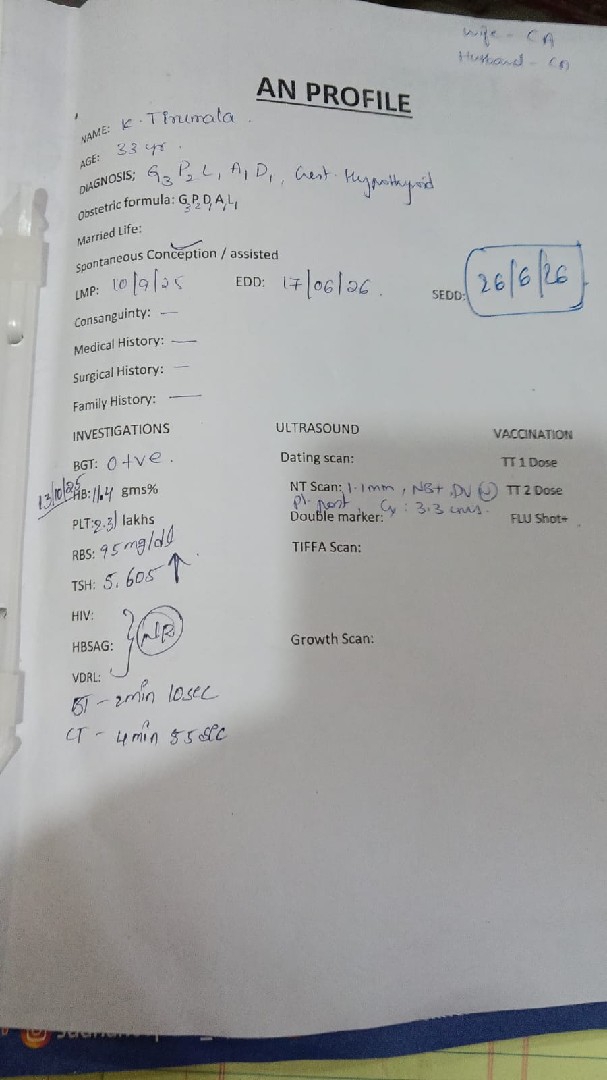 Wife - CA
Husband - CA
AN PROFILE
NAME: K. Tirumala.
AGE: 33 yr.
DIAGNOSIS; G3 P2 L1 A1 D1, Gest. Hypothyroid
Obstetric formula: G3P2D1A1L1
Married Life:
Spontaneous Conception / assisted
LMP: 10/9/25 EDD: 17/06/26. SEDD: 26/6/26
Consanguinty: —
Medical History: —
Surgical History: —
Family History: —
INVESTIGATIONS ULTRASOUND VACCINATION
BGT: O +ve. Dating scan: TT 1 Dose
13/10/25 HB: 11.4 gms% NT Scan: 1.1mm, NB+, DV (N) TT 2 Dose
pl. post Cx : 3.3 cms.
PLT: 2.31 lakhs Double marker: FLU Shot+
RBS: 95 mg/dl TIFFA Scan:
TSH: 5.605 ↑
HIV:
HBSAG: NR Growth Scan:
VDRL:
BT - 2min 10sec
CT - 4 min 55 sec